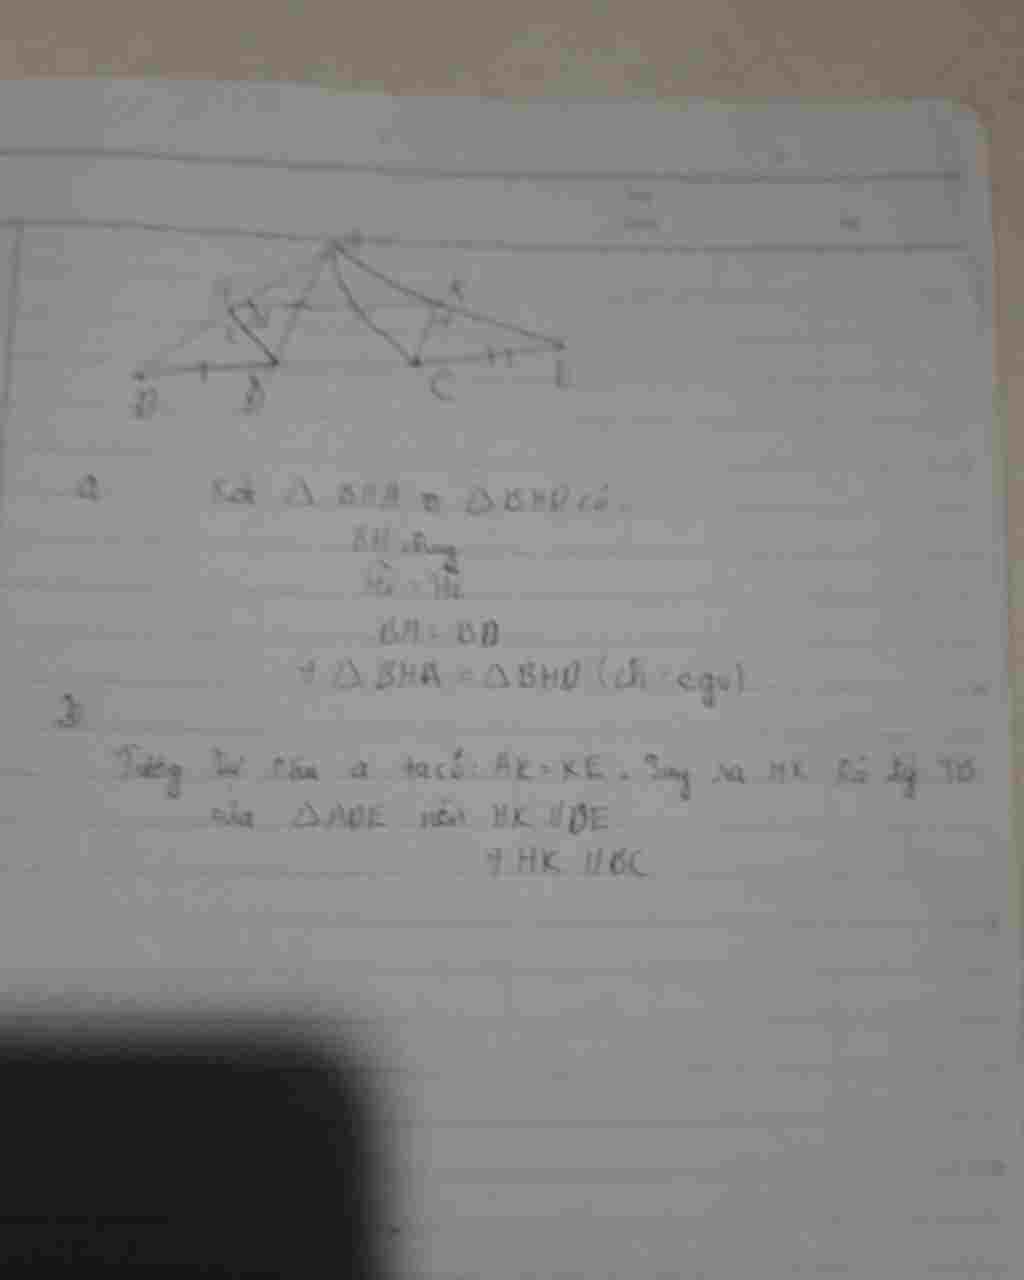 A
K
D
B
C
E
a
Xét △ BHA và △ BHD có:
BH chung
BA = BD
→ △ BHA = △ BHD (ch - cgv)
b
Tương tự câu a ta có: AK = KE. Suy ra HK là
của △ADE nên HK // DE
→ HK // BC